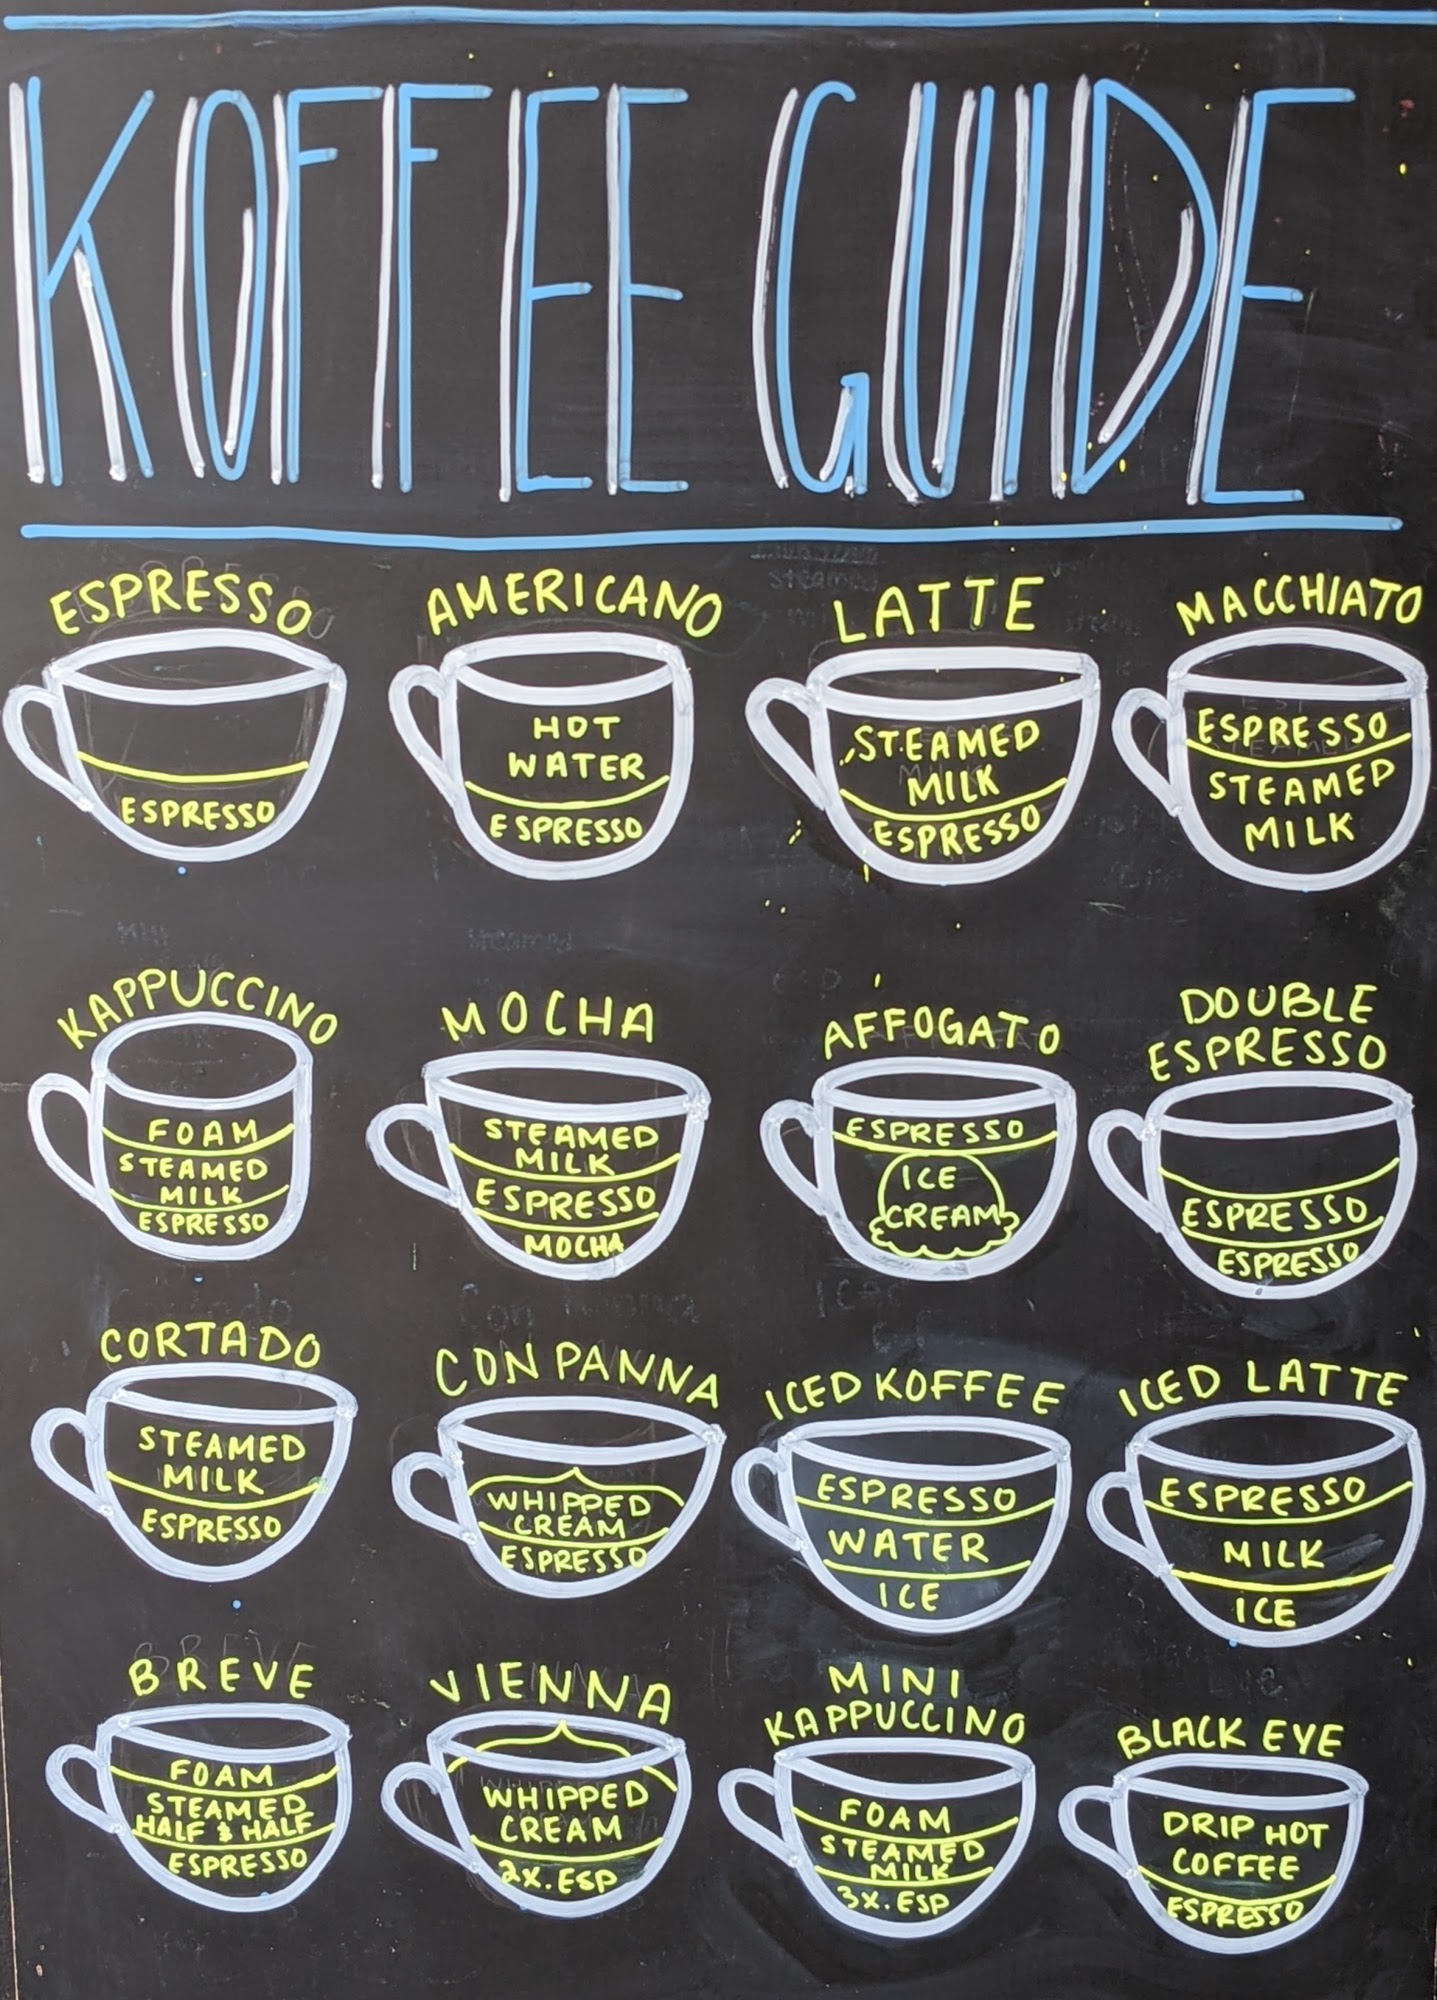 KOFFEE GUIDE
ESPRESSO
ESPRESSO
AMERICANO
HOT
WATER
ESPRESSO
LATTE
STEAMED
MILK
ESPRESSO
MACCHIATO
ESPRESSO
STEAMED
MILK
KAPPUCCINO
FOAM
STEAMED
MILK
ESPRESSO
MOCHA
STEAMED
MILK
ESPRESSO
MOCHA
AFFOGATO
ESPRESSO
ICE
CREAM
DOUBLE
ESPRESSO
ESPRESSO
ESPRESSO
CORTADO
STEAMED
MILK
ESPRESSO
CON PANNA
WHIPPED
CREAM
ESPRESSO
ICED KOFFEE
ESPRESSO
WATER
ICE
ICED LATTE
ESPRESSO
MILK
ICE
BREVE
FOAM
STEAMED
HALF & HALF
ESPRESSO
VIENNA
WHIPPED
CREAM
2X. ESP
MINI
KAPPUCCINO
FOAM
STEAMED
MILK
3X. ESP
BLACK EYE
DRIP HOT
COFFEE
ESPRESSO